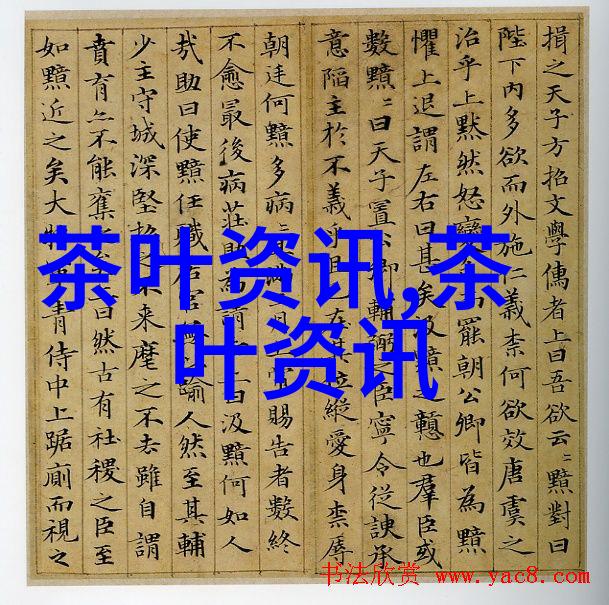 損之天子方招文學儒者上曰吾欲云〻黯對曰
陛下內多欲而外施仁義柰何欲效唐虞之
治乎上黙然怒變罷朝公卿皆為黯
懼上退謂左右曰甚矣汲黯之戇也羣臣或
數黯〻曰天子置公卿輔弼之臣寧令從諛承
意陷主於不義乎且已在其位縱愛身柰辱
朝廷何黯多病〻賜告者數終
不愈最後病莊助為請曰汲黯何如人
㢤助曰使黯任職居官踰人然至其輔
少主守城深堅招之不来麾之不去雖自謂
賁育亦不能奪之矣曰然古有社稷之臣至
如黯近之矣大將軍青侍中上踞廁而視之
茶叶资讯,茶
叶资讯
书法欣赏 www.yac8.com